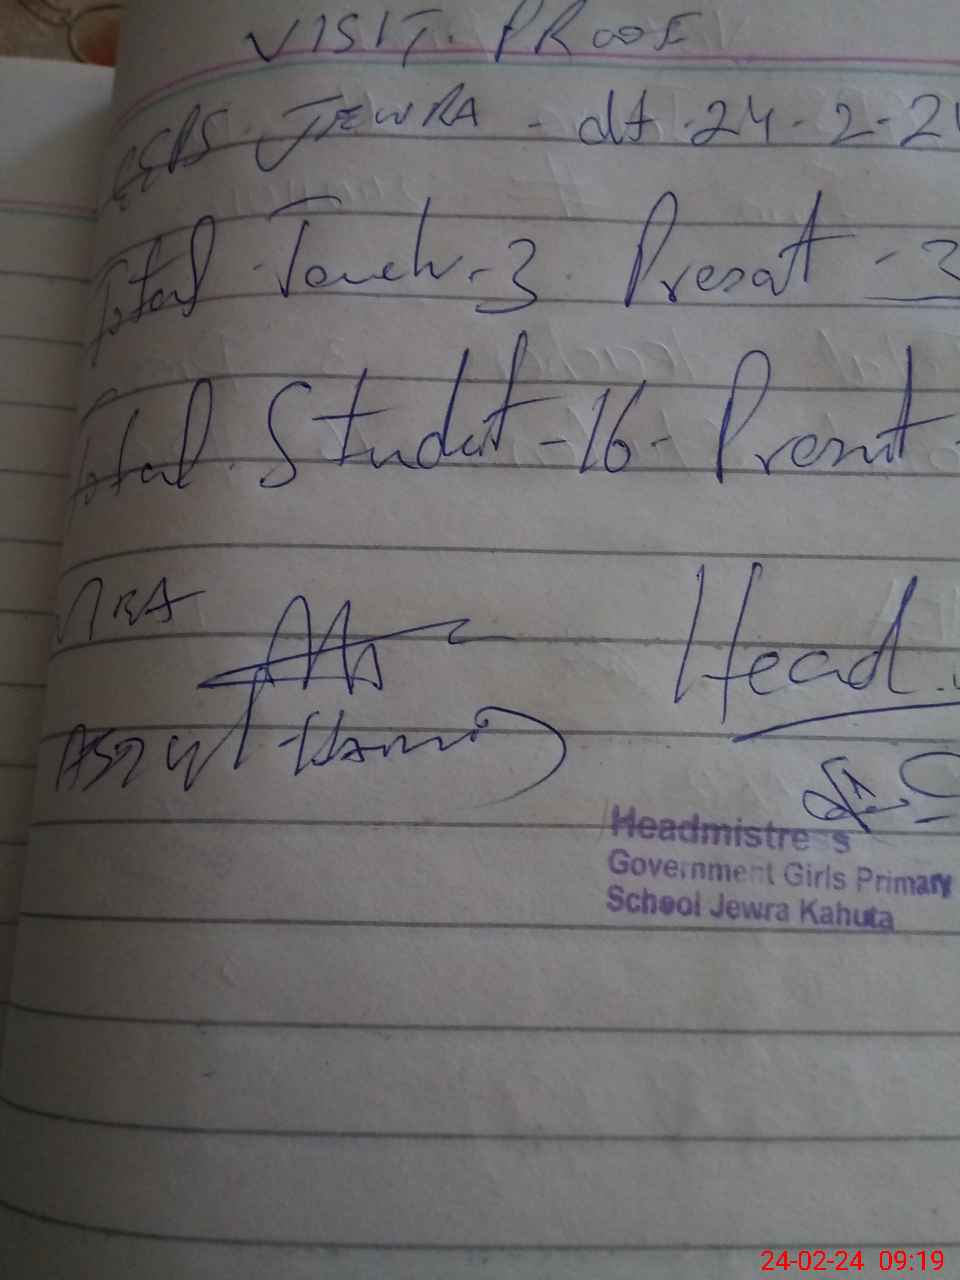 VISIT. PROOF
GGPS. JEWRA - dt. 24-2-24
Total Teach - 3. Present - 3
Total Student - 16 - Present -
Head
Headmistress
Government Girls Primary
School Jewra Kahuta
24-02-24 09:19